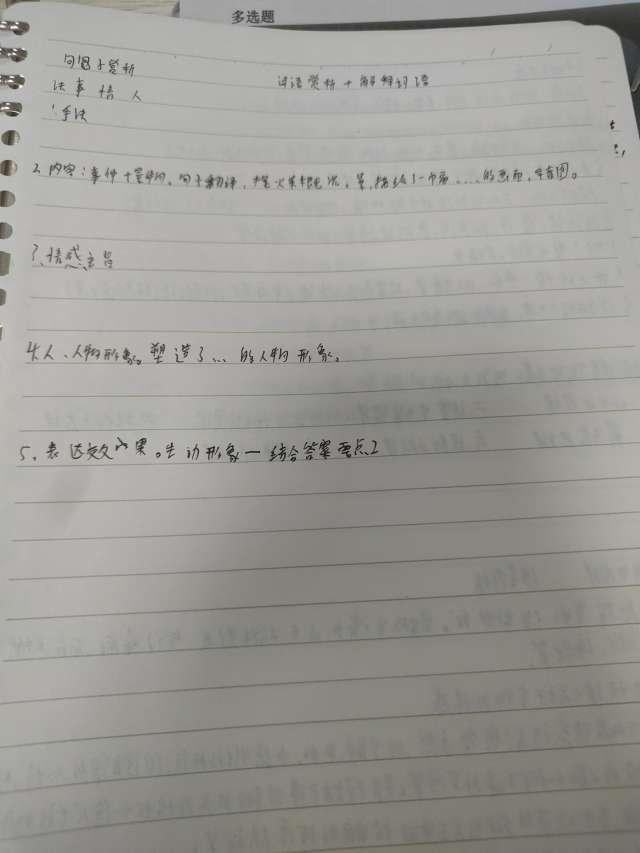 多选题
句子赏析
词语赏析+解释词语
法 事 情 人
1手法
2.内容:事件+景物。句子翻译,描绘了一个……的画面,
3.情感主旨
4.人、人物形象。塑造了…的人物形象。
5.表达效果。生动形象一结合答案要点2